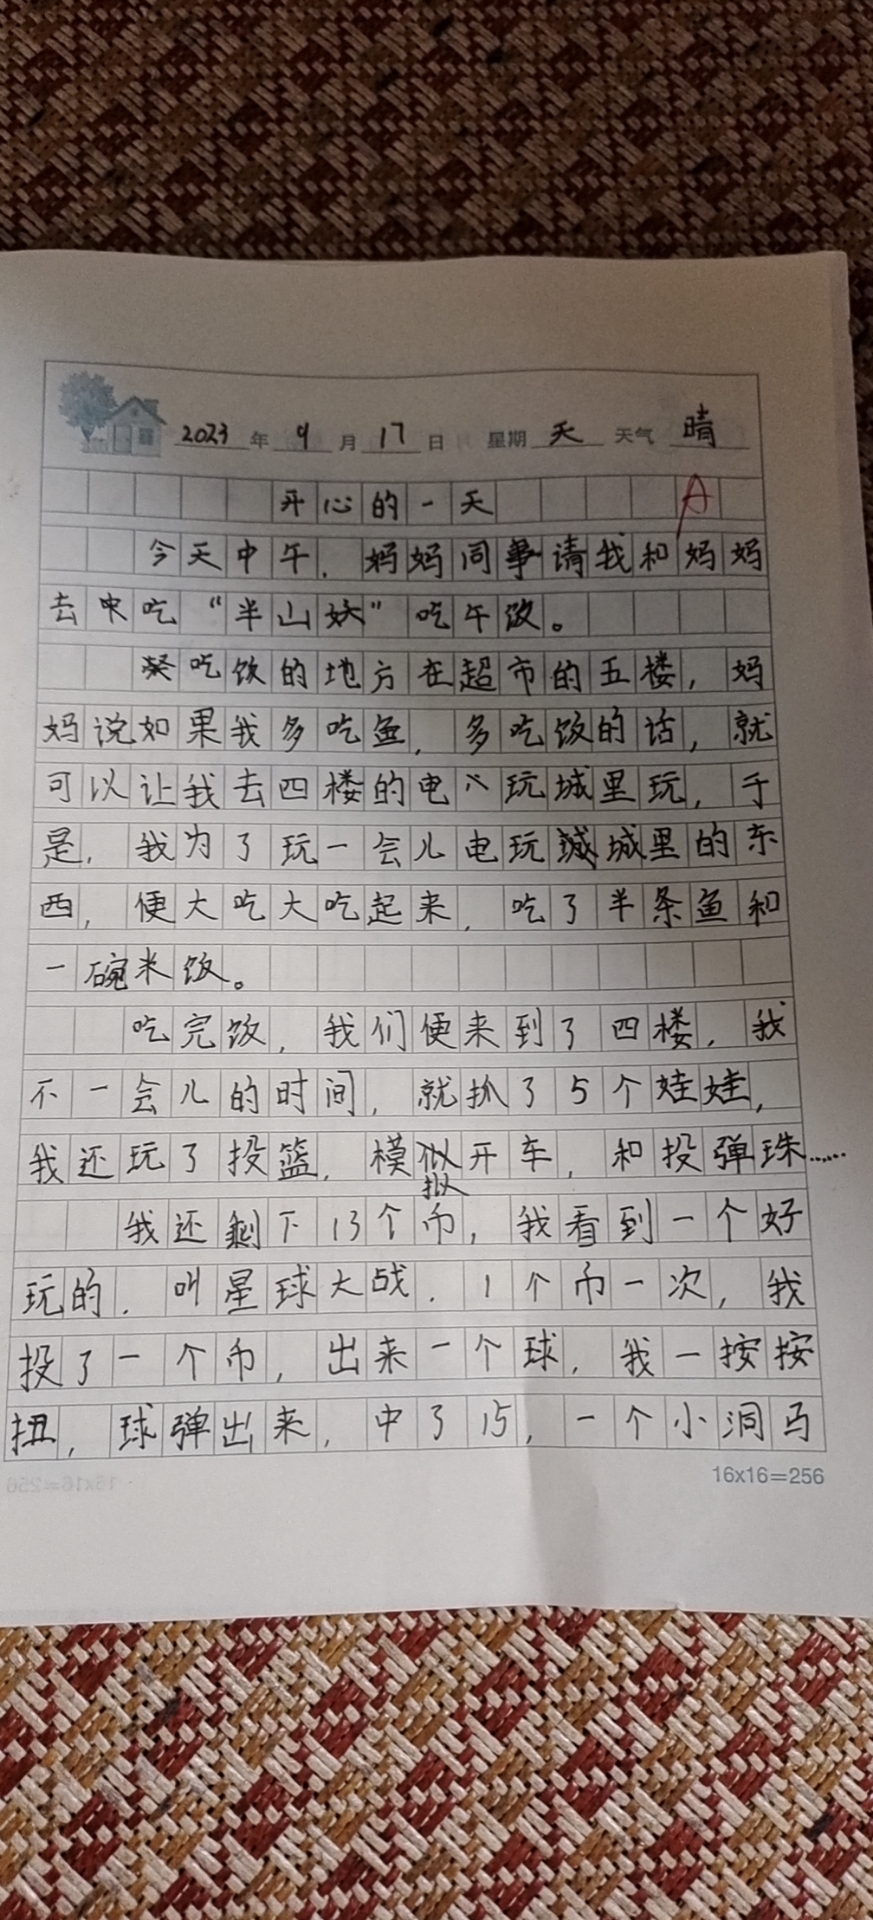 2023年9月17日 星期天 天气晴
开心的一天 A
今天中午，妈妈同事请我和妈妈
去吃“半山妖”吃午饭。
吃饭的地方在超市的五楼，妈
妈说如果我多吃鱼，多吃饭的话，就
可以让我去四楼的电玩城里玩，于
是，我为了玩一会儿电玩城里的东
西，便大吃大吃起来，吃了半条鱼和
一碗米饭。
吃完饭，我们便来到了四楼，我
不一会儿的时间，就抓了5个娃娃，
我还玩了投篮，模拟开车，和投弹珠……
我还剩下13个币，我看到一个好
玩的，叫星球大战，1个币一次，我
投了一个币，出来一个球，我一按按
扭，球弹出来，中了15，一个小洞马
16x16=256